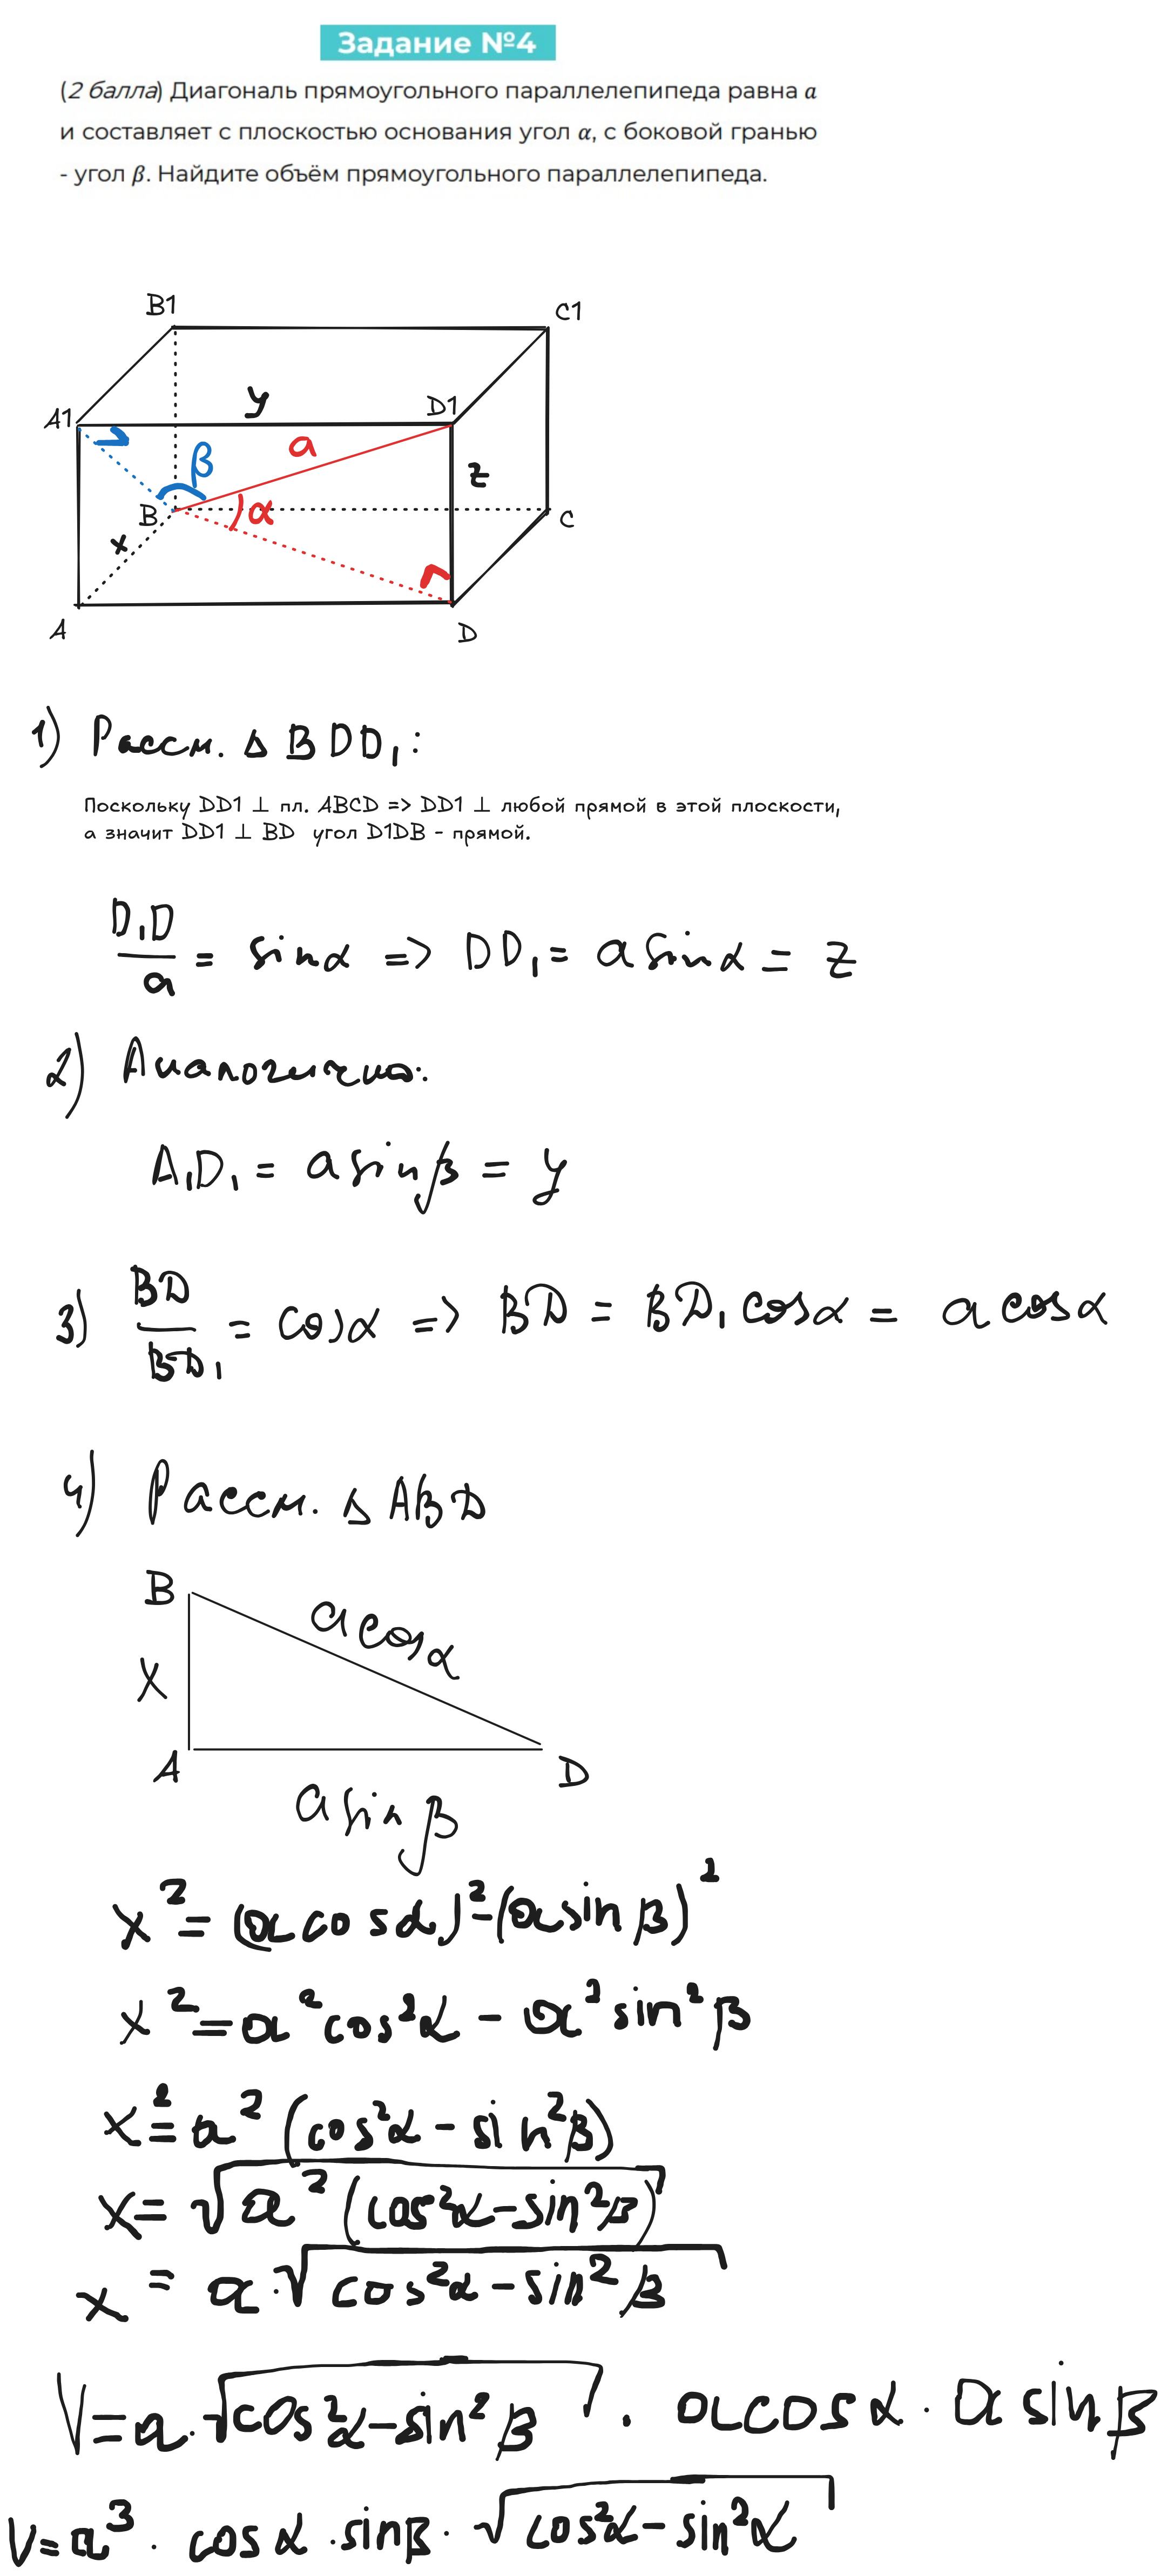 Задание №4
(2 балла) Диагональ прямоугольного параллелепипеда равна a
и составляет с плоскостью основания угол α, с боковой гранью
- угол β. Найдите объём прямоугольного параллелепипеда.
B1
C1
y
A1
D1
a
β
z
B
α
C
x
A
D
1) Рассм. Δ BDD₁:
Поскольку DD1 ⊥ пл. ABCD => DD1 ⊥ любой прямой в этой плоскости,
а значит DD1 ⊥ BD угол D1DB - прямой.
D₁D/a = sinα => DD₁ = a sinα = z
2) Аналогично:
A₁D₁ = a sinβ = y
3) BD/BD₁ = cosα => BD = BD₁ cosα = a cosα
4) Рассм. Δ ABD
B
a cosα
x
A
D
a sinβ
x² = (a cosα)² - (a sinβ)²
x² = a² cos²α - a² sin²β
x² = a² (cos²α - sin²β)
x = √(a² (cos²α - sin²β))
x = a · √(cos²α - sin²β)
V = a · √(cos²α - sin²β) · a cosα · a sinβ
V = a³ · cosα · sinβ · √(cos²α - sin²α)